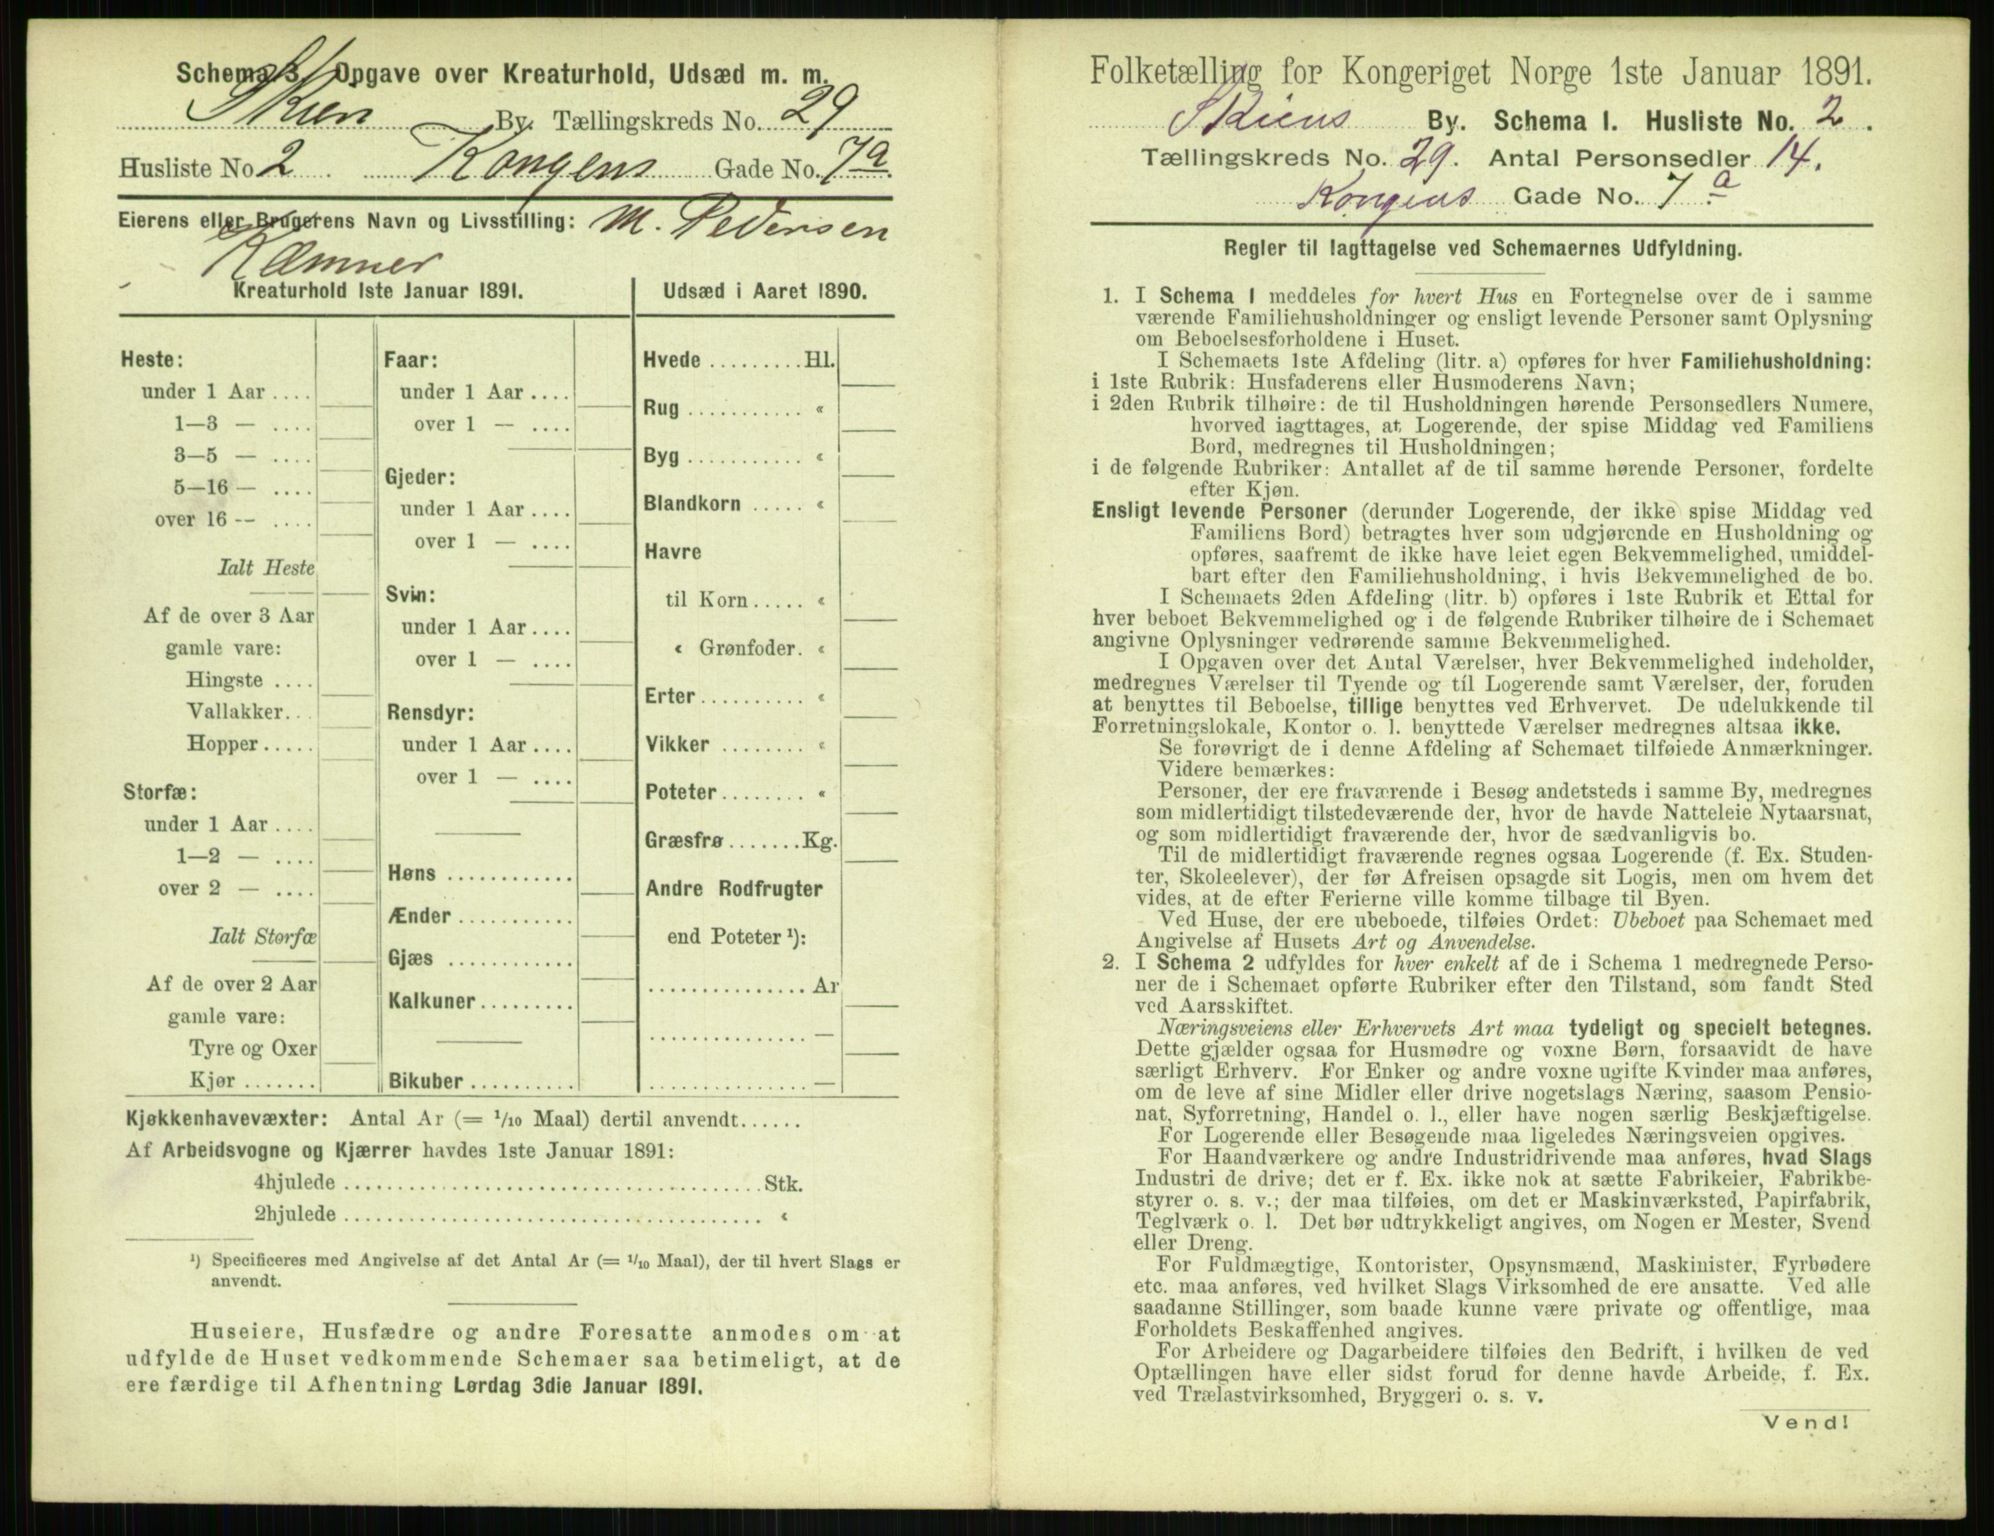 Schema 3. Opgave over Kreaturhold, Udsæd m. m.
Skien By. Tællingskreds No. 29
Husliste No 2 Kongens Gade No. 7a.
Eierens eller Brugerens Navn og Livsstilling: M. Pedersen
Kæmner
Kreaturhold 1ste Januar 1891.
Heste:
under 1 Aar ....
1—3 — ....
3—5 — ....
5—16 — ....
over 16 -- ....
Ialt Heste
Af de over 3 Aar
gamle vare:
Hingste ....
Vallakker...
Hopper.....
Storfæ:
under 1 Aar....
1—2 — ....
over 2 — ....
Ialt Storfæ
Af de over 2 Aar
gamle vare:
Tyre og Oxer
Kjør.......
Faar:
under 1 Aar....
over 1 — ....
Gjeder:
under 1 Aar....
over 1 — ....
Svin:
under 1 Aar....
over 1 — ....
Rensdyr:
under 1 Aar....
over 1 — ....
Høns ............
Ænder...........
Gjæs ............
Kalkuner.........
Bikuber..........
Udsæd i Aaret 1890.
Hvede.........Hl.
Rug ........... «
Byg ........... «
Blandkorn ..... «
Havre
til Korn..... «
« Grønfoder. «
Erter.......... «
Vikker ........ «
Poteter........ «
Græsfrø.......Kg.
Andre Rodfrugter
end Poteter ¹):
...............Ar
............... —
...............—
Kjøkkenhavevæxter: Antal Ar (= 1/10 Maal) dertil anvendt......
Af Arbeidsvogne og Kjærrer havdes 1ste Januar 1891:
4hjulede.......................................Stk.
2hjulede....................................... «
¹) Specificeres med Angivelse af det Antal Ar (= 1/10 Maal), der til hvert Slags er
anvendt.
Huseiere, Husfædre og andre Foresatte anmodes om at
udfylde de Huset vedkommende Schemaer saa betimeligt, at de
ere færdige til Afhentning Lørdag 3die Januar 1891.
Folketælling for Kongeriget Norge 1ste Januar 1891.
Skiens By. Schema I. Husliste No. 2.
Tællingskreds No. 29. Antal Personsedler 14.
Kongens Gade No. 7a
Regler til Iagttagelse ved Schemaernes Udfyldning.
1. I Schema I meddeles for hvert Hus en Fortegnelse over de i samme
værende Familiehusholdninger og ensligt levende Personer samt Oplysning
om Beboelsesforholdene i Huset.
I Schemaets 1ste Afdeling (litr. a) opføres for hver Familiehusholdning:
i 1ste Rubrik: Husfaderens eller Husmoderens Navn;
i 2den Rubrik tilhøire: de til Husholdningen hørende Personsedlers Numere,
hvorved iagttages, at Logerende, der spise Middag ved Familiens
Bord, medregnes til Husholdningen;
i de følgende Rubriker: Antallet af de til samme hørende Personer, fordelte
efter Kjøn.
Ensligt levende Personer (derunder Logerende, der ikke spise Middag ved
Familiens Bord) betragtes hver som udgjørende en Husholdning og
opføres, saafremt de ikke have leiet egen Bekvemmelighed, umiddel-
bart efter den Familiehusholdning, i hvis Bekvemmelighed de bo.
I Schemaets 2den Afdeling (litr. b) opføres i 1ste Rubrik et Ettal for
hver beboet Bekvemmelighed og i de følgende Rubriker tilhøire de i Schemaet
angivne Oplysninger vedrørende samme Bekvemmelighed.
I Opgaven over det Antal Værelser, hver Bekvemmelighed indeholder,
medregnes Værelser til Tyende og til Logerende samt Værelser, der, foruden
at benyttes til Beboelse, tillige benyttes ved Erhvervet. De udelukkende til
Forretningslokale, Kontor o. l. benyttede Værelser medregnes altsaa ikke.
Se forøvrigt de i denne Afdeling af Schemaet tilføiede Anmærkninger.
Videre bemærkes:
Personer, der ere fraværende i Besøg andetsteds i samme By, medregnes
som midlertidigt tilstedeværende der, hvor de havde Natteleie Nytaarsnat,
og som midlertidigt fraværende der, hvor de sædvanligvis bo.
Til de midlertidigt fraværende regnes ogsaa Logerende (f. Ex. Studen-
ter, Skoleelever), der før Afreisen opsagde sit Logis, men om hvem det
vides, at de efter Ferierne ville komme tilbage til Byen.
Ved Huse, der ere ubeboede, tilføies Ordet: Ubeboet paa Schemaet med
Angivelse af Husets Art og Anvendelse.
2. I Schema 2 udfyldes for hver enkelt af de i Schema 1 medregnede Perso-
ner de i Schemaet opførte Rubriker efter den Tilstand, som fandt Sted
ved Aarsskiftet.
Næringsveiens eller Erhvervets Art maa tydeligt og specielt betegnes.
Dette gjælder ogsaa for Husmødre og voxne Børn, forsaavidt de have
særligt Erhverv. For Enker og andre voxne ugifte Kvinder maa anføres,
om de leve af sine Midler eller drive nogetslags Næring, saasom Pensio-
nat, Syforretning, Handel o. l., eller have nogen særlig Beskjæftigelse.
For Logerende eller Besøgende maa ligeledes Næringsveien opgives.
For Haandværkere og andre Industridrivende maa anføres, hvad Slags
Industri de drive; det er f. Ex. ikke nok at sætte Fabrikeier, Fabrikbe-
styrer o. s. v.; der maa tilføies, om det er Maskinværksted, Papirfabrik,
Teglværk o. l. Det bør udtrykkeligt angives, om Nogen er Mester, Svend
eller Dreng.
For Fuldmægtige, Kontorister, Opsynsmænd, Maskinister, Fyrbødere
etc. maa anføres, ved hvilket Slags Virksomhed de ere ansatte. Ved alle
saadanne Stillinger, som baade kunne være private og offentlige, maa
Forholdets Beskaffenhed angives.
For Arbeidere og Dagarbeidere tilføies den Bedrift, i hvilken de ved
Optællingen have eller sidst forud for denne havde Arbeide, f. Ex.
ved Trælastvirksomhed, Bryggeri o. s. v.
Vend!